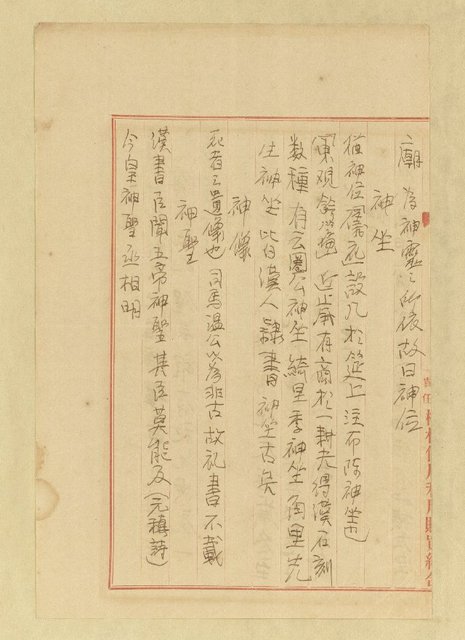 廟 為神靈之所依故曰神位
神坐
猶神位儀礼設几於筵上注布陳神坐也
東觀餘論 近歲有商於一耕者得漢石刻
数種有云圈公神坐綺里季神坐甪里先
生神坐皆漢人隸書神坐古矣
神像
死者之遺像也 司馬温公以為非古故礼書不載
神聖
漢書臣聞五帝神聖其臣莫能及(元稹詩)
今皇神聖丞相明